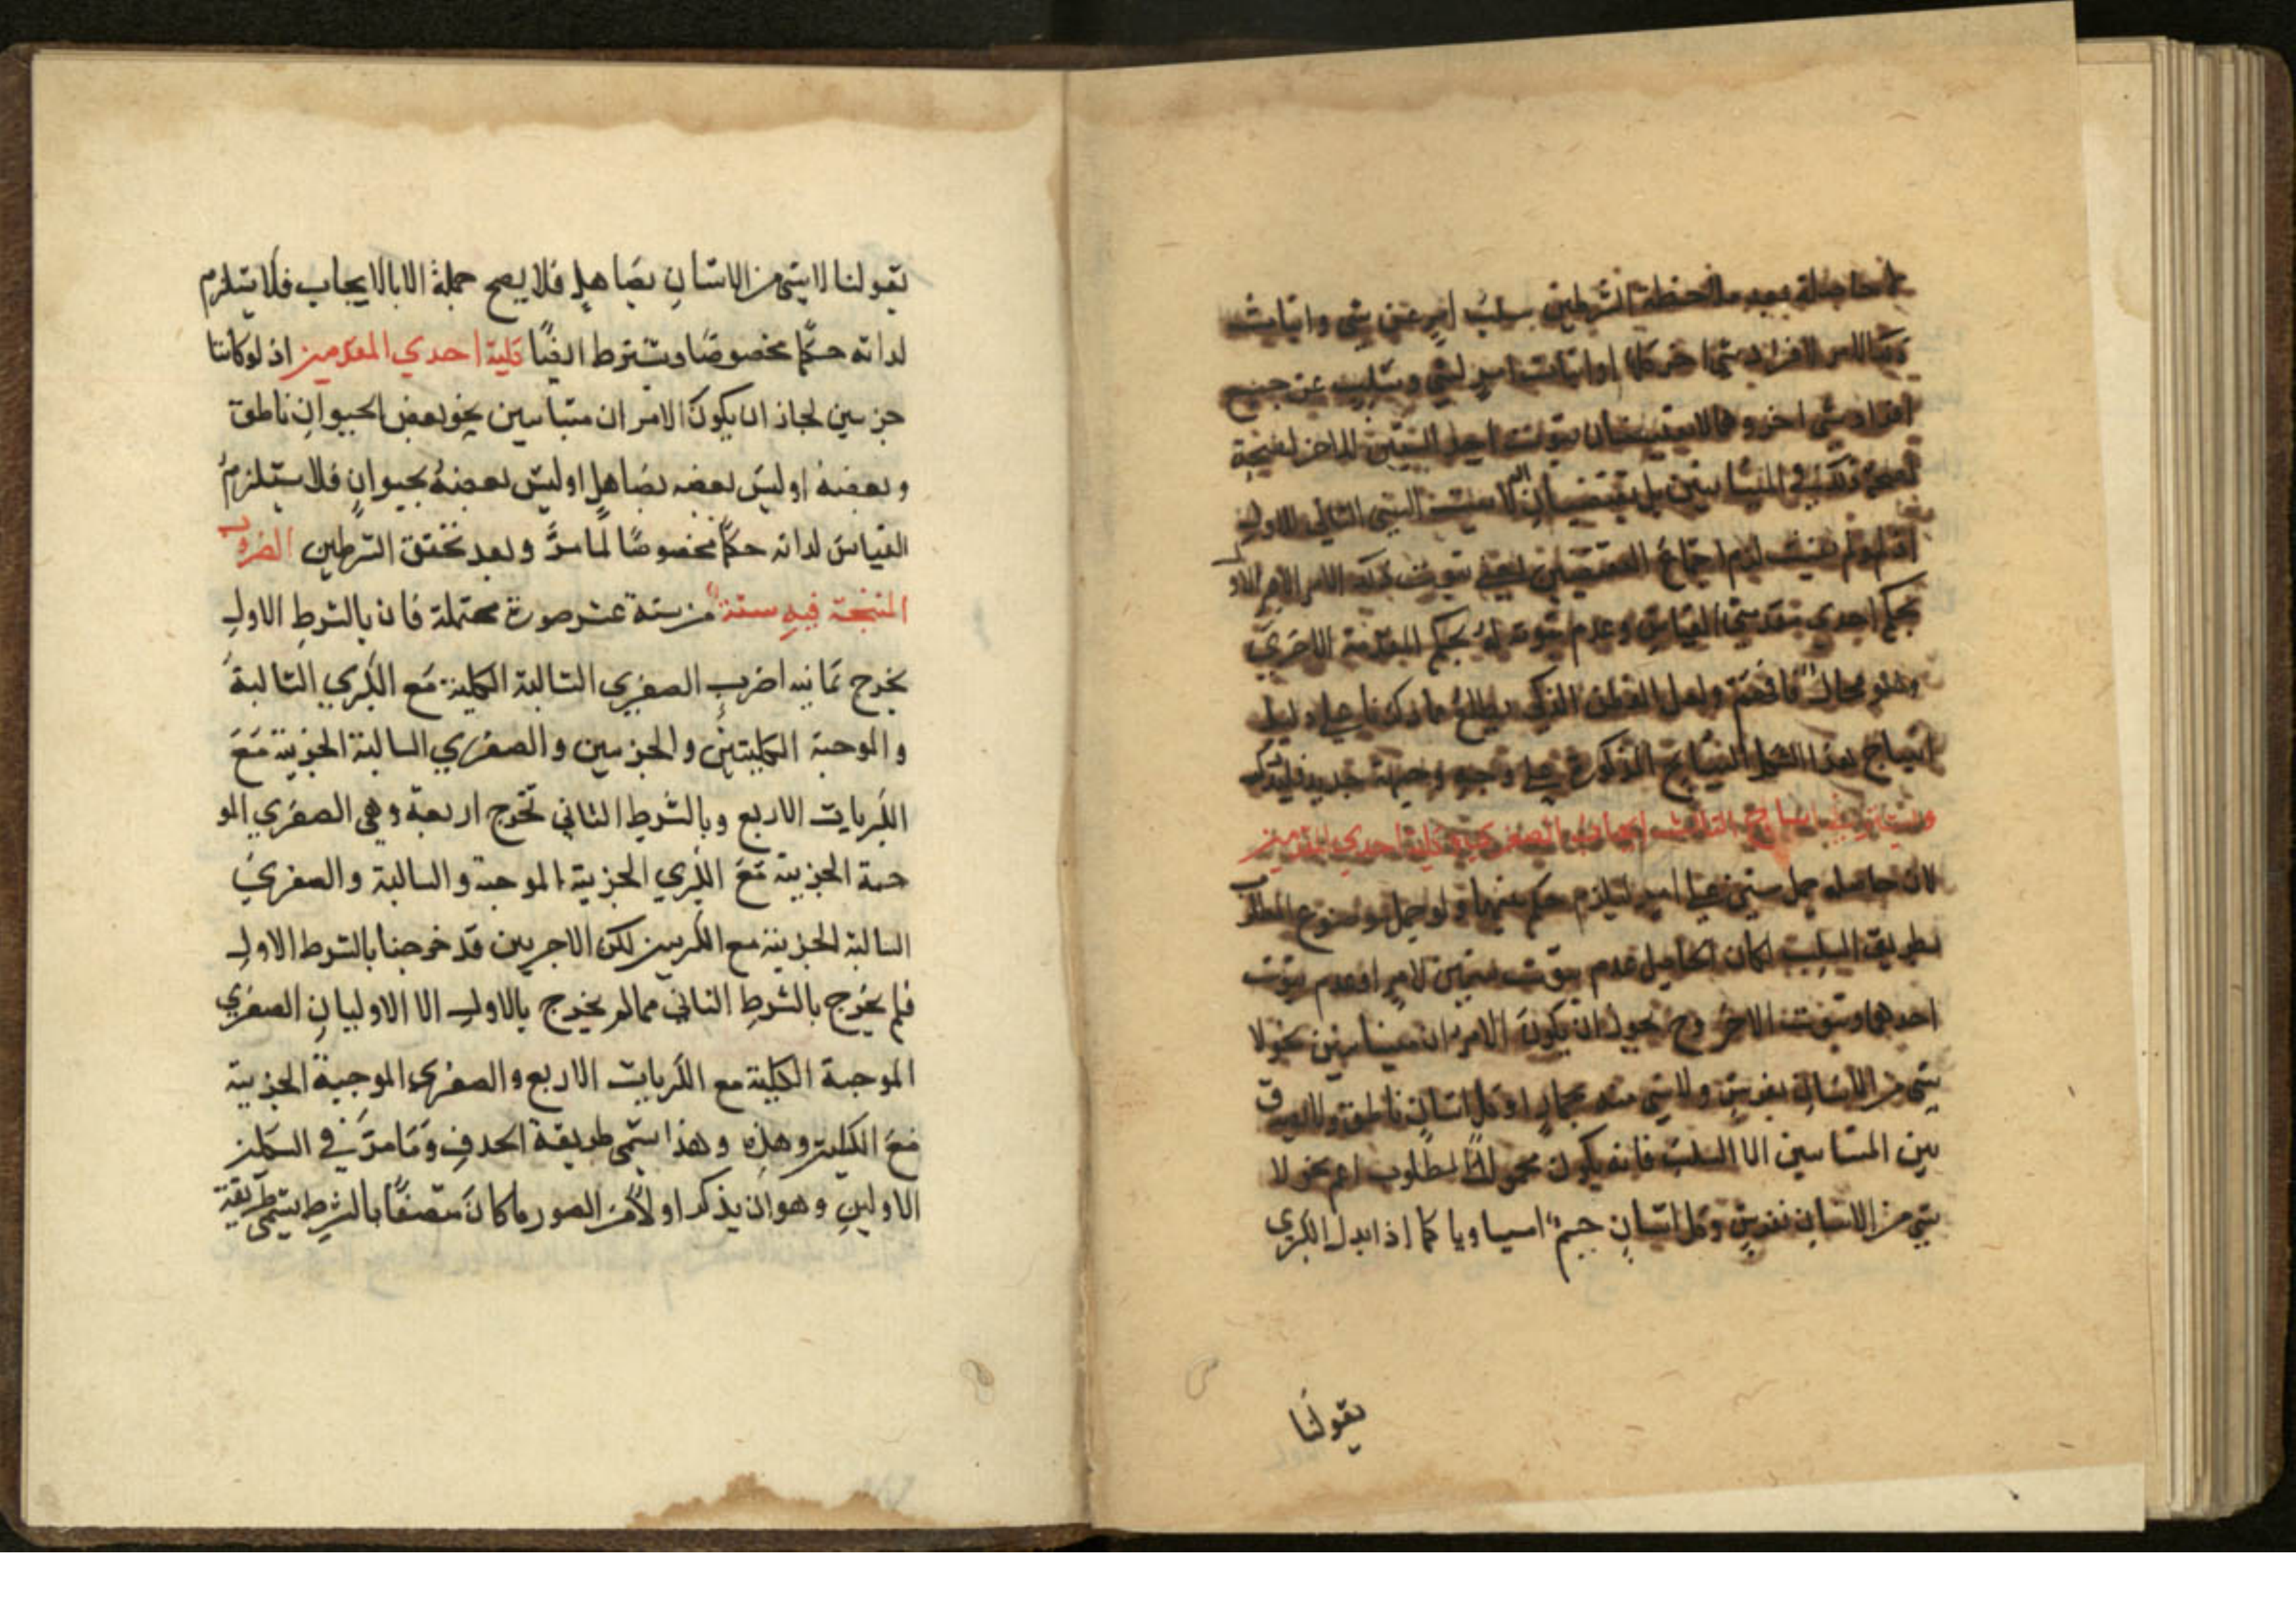 حاصله بعد ملاحظة الشرطين سلب امر عن شي واثبات
ذلك الامر لافراد شي اخر كلا او اثبات امر لشي وسلبه عن جميع
افراد شي اخر وهما لا يقتضيان ثبوت احد الشيئين للاخر لصحة
ذلك في المتباينين بل يقتضيان ان لا يثبت الشي الثاني للاول
اذ لو لم يثبت لزم اجتماع النقيضين يعني ثبوت ذلك الامر
بحكم احدي مقدمتي القياس وعدم ثبوته له بحكم المقدمة الاخري
وهو محال فافهم ولعل الفطن الذكي يطلع ما ذكرنا علي دليل
انتاج هذا الشكل النتايج المذكورة علي وجه وجيه جديد فليتذكر
الثالث ايجاب الصغري وكلية احدي المقدمتين
لان حاصله حمل شيئين علي امر ليلزم حكم بينهما ولو حمل موضوع المطلوب
بطريق السلب لكان الحاصل عدم ثبوت شيئين لامر او عدم ثبوت
احدهما وثبوت الاخر وح يجوز ان يكون الامران متباينين نحو لا
شي من الانسان بفرس ولا شي منه بحمار او كل انسان ناطق ولا يصدق
بين المتباينين الا السلب فانه يكون محمول المطلوب اعم نحو لا
شي من الانسان بفرس وكل انسان جسم او مساويا كما اذا بدل الكبري
بقولنا
بقولنا لا شي من الانسان بصاهل فلا يصح حمله الا بالايجاب فلا يستلزم
لذاته حكما مخصوصا ويشترط ايضا كلية احدي المقدمتين اذ لو كانتا
جزئيين لجاز ان يكون الامران متباينين نحو بعض الحيوان ناطق
وبعضه او ليس بعضه بصاهل او ليس بعضه بحيوان فلا يستلزم
القياس لذاته حكما مخصوصا لما مر وبعد تحقق الشرطين الضروب
المنتجة فيه ستة من ستة عشر صورة محتملة فان بالشرط الاول
يخرج ثمانيه اضرب الصغري السالبة الكلية مع الكبري السالبة
والموجبة الكليتين والجزئيين والصغري السالبة الجزئية مع
الكبريات الاربع وبالشرط الثاني تخرج اربعة وهي الصغري المو
جبة الجزئية مع الكبري الجزئية الموجبة والسالبة والصغري
السالبة الجزئية مع الكبريين لكن الاخريين قد خرجتا بالشرط الاول
فلم يخرج بالشرط الثاني مما لم يخرج بالاول الا الاوليان الصغري
الموجبة الكلية مع الكبريات الاربع والصغري الموجبة الجزئية
مع الكليتين وهذه وهذا يسمي طريقة الحذف وما مر في الشكلين
الاولين وهو ان يذكر اولا من الصور ما كان متصفا بالشرط يسمي طريقة